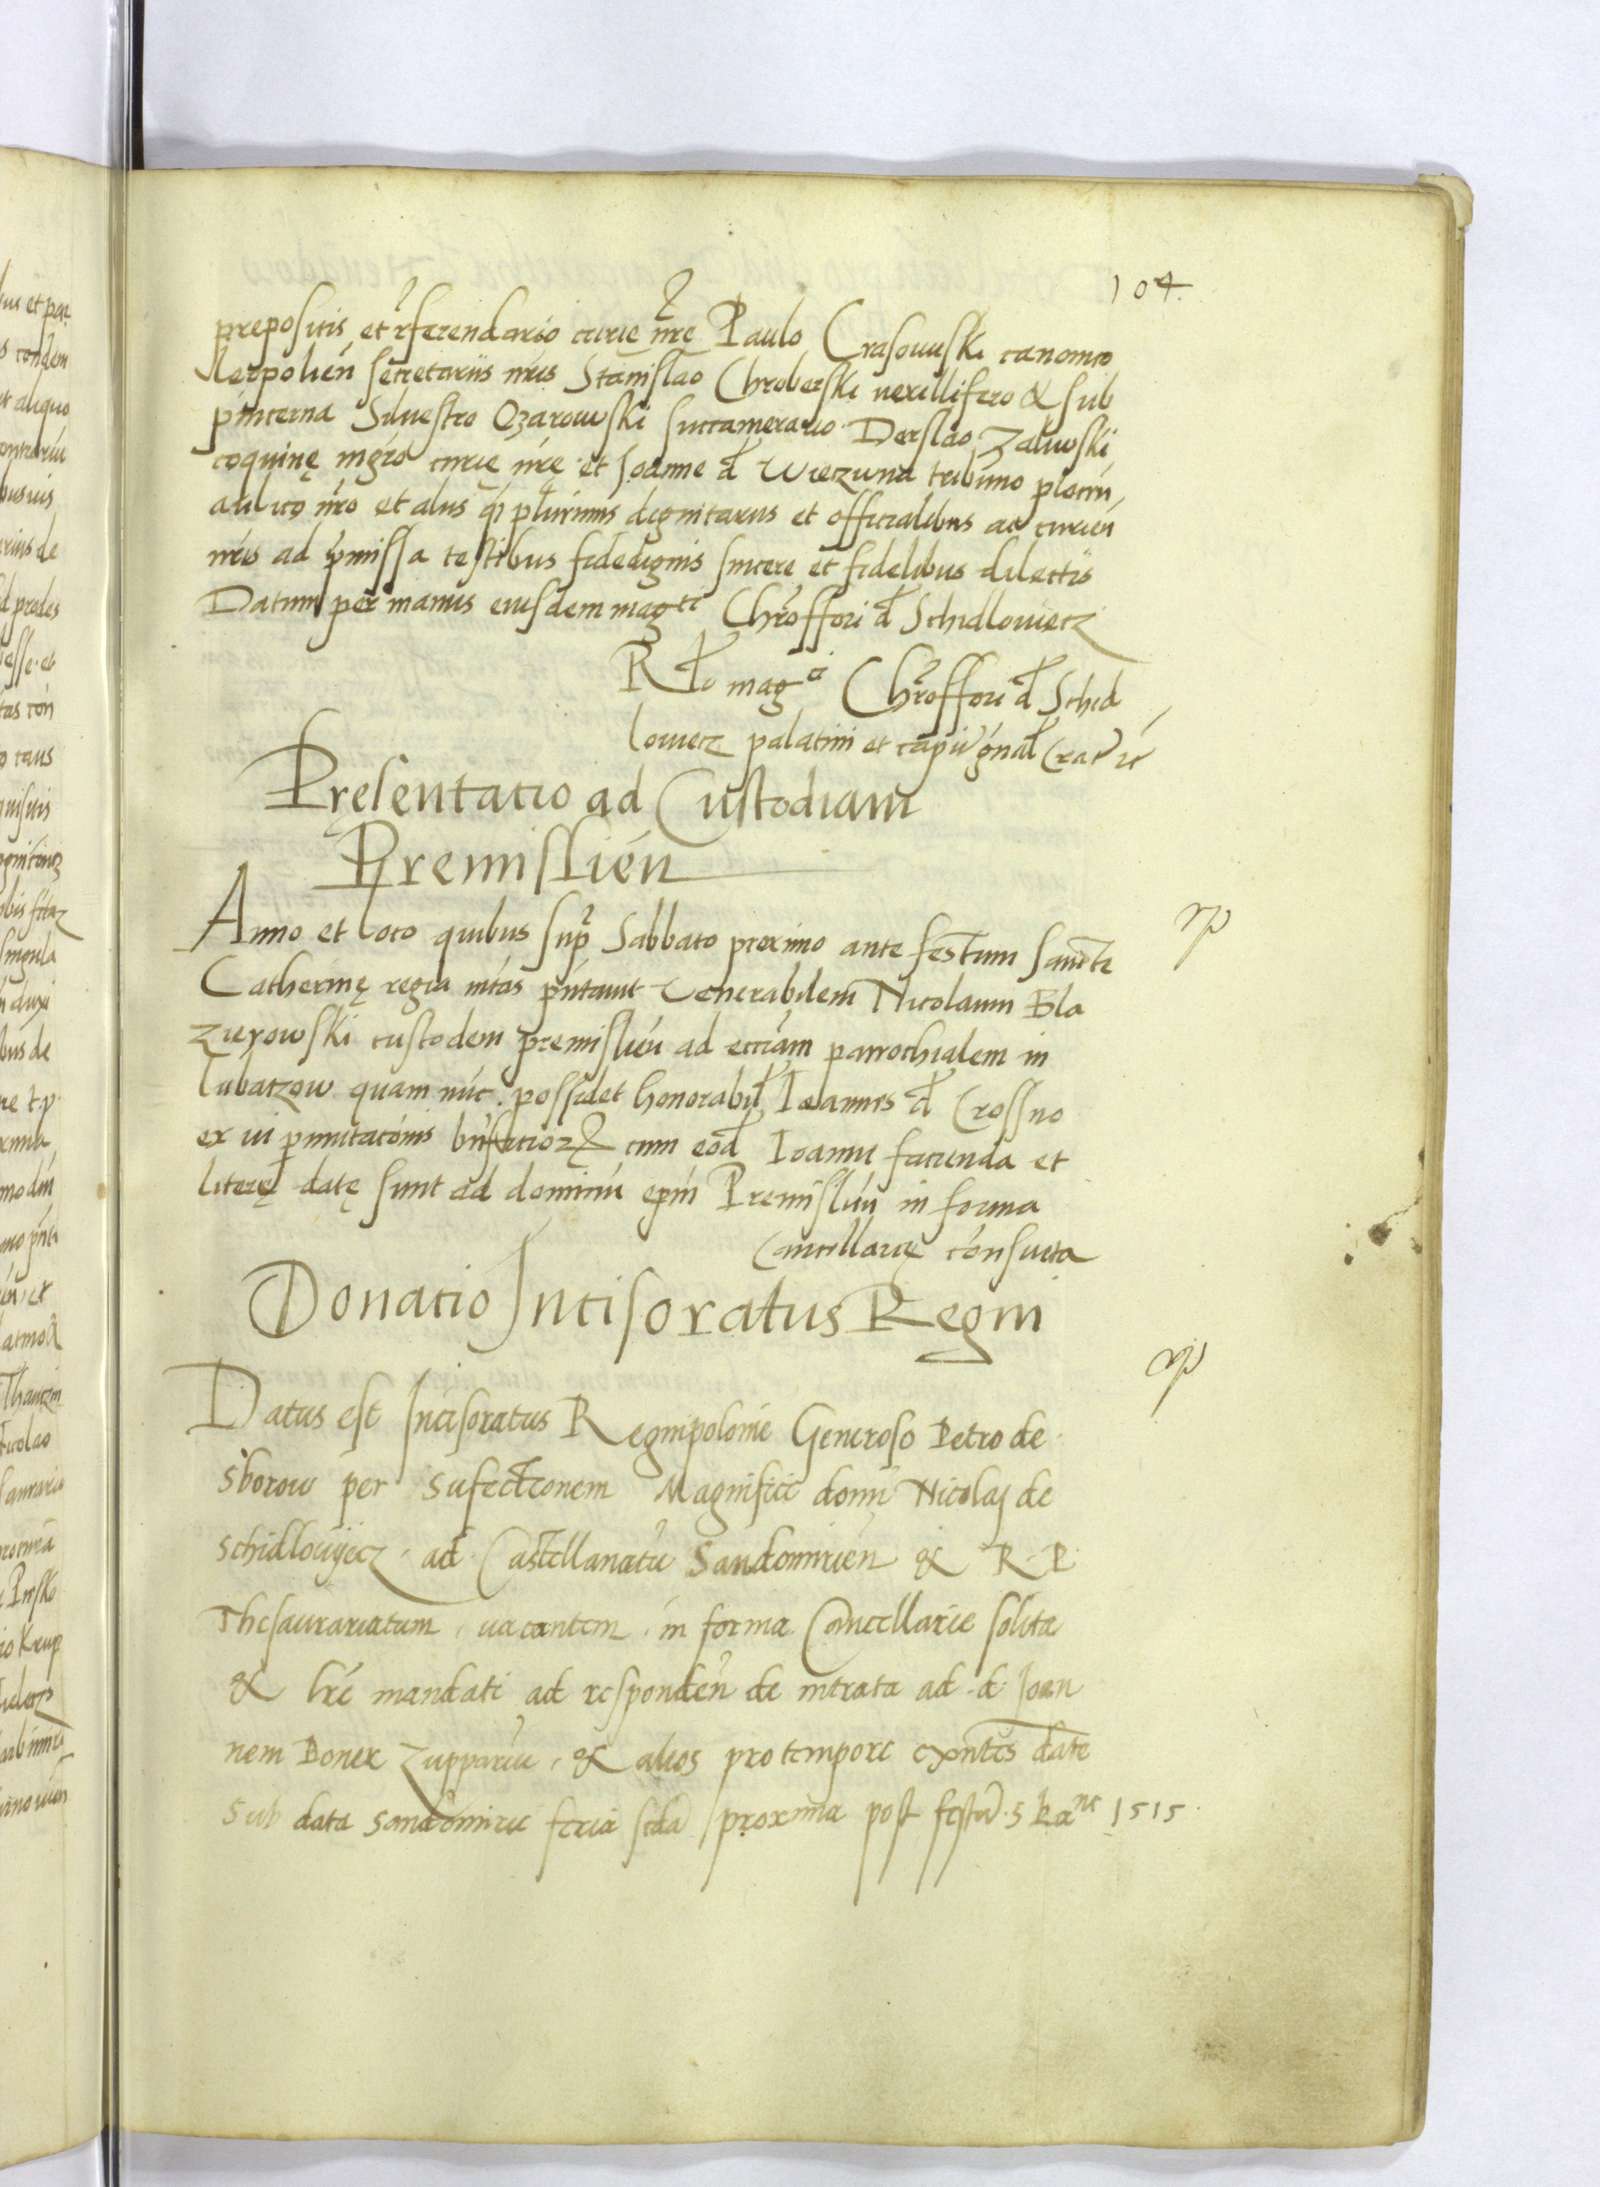 104.
prepositis et rferendario curie nre Paulo Crasowski canonico
Leopolien secretariis nris Stanislao Chroberski vexillifero & sub
pincerna Silvestro Ozarowski succamerario Derslao Zaliwski
coquinę mgro curię nrę et Joanne d Wieczvna tribuno plocen,
aulico nro et aliis q plurimis dignitariis et officialibus ac curien
nris ad pmissa testibus fidedignis sincere et fidelibus dilectis
Datum per manus eiusdem mag^ci Chroffori d Schidlowiecz
Rlo mag^ci Chroffori d Schid
lowiecz palatini et capi gnal Crac
Pręsentatio ad Custodiam
Premislien
Anno et loco quibus sup Sabbato proximo ante festum sancte
Catherinę regia mtas pntavit Venerabilem Nicolaum Bla
zierowski custodem premislien ad ecciam parrochialem in
lubaczow quam nuc possidet honorabil Ioannes d Crossno
ex vi pmutacionis bnficior cum eod Ioanne facienda et
literę datę sunt ad dominu epm Premislien in forma
Cancellarię consueta
Donatio Incisoratus Regni
Datus est Incisoratus Regni polonie Generoso Petro de
Sborow per sufectionem Magnifici domi Nicolaj de
schidlovyecz ad Castellanatu Sandomirien & R. P.
Thesaurariatum, vacantem, in forma Cancellarie solita
& lre mandati ad responden de intrata ad d. Joan
nem Boner Zuppariu, & alios pro tempore exntes date
Sub data Sandomirie feria scda proxima post festu S Ka^ne 1515.